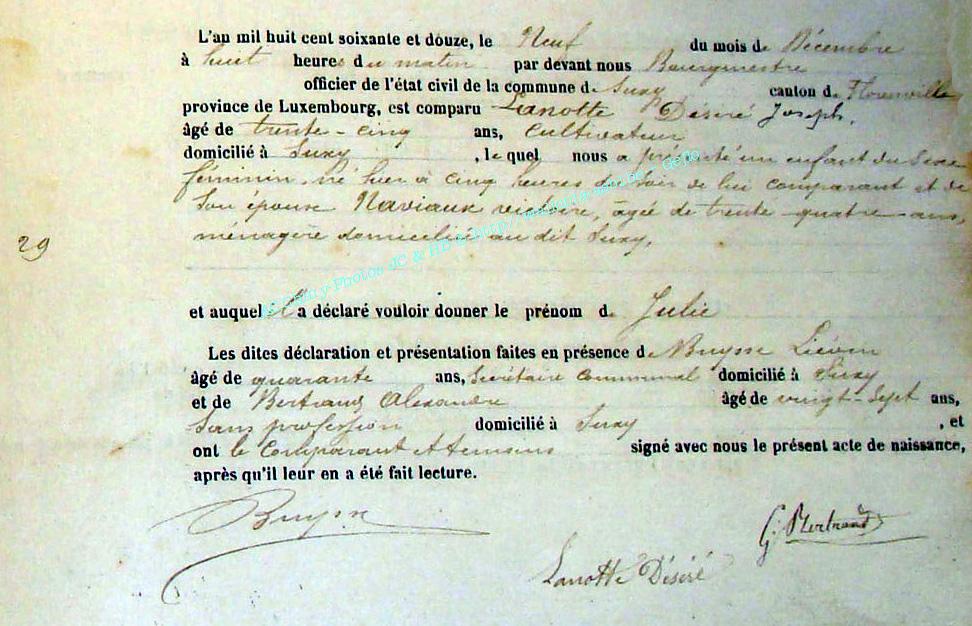 L'an mil huit cent soixante et douze, le Neuf du mois de Décembre
à huit heures du matin par devant nous Bourgmestre
officier de l'état civil de la commune de Suxy canton de Florenville
province de Luxembourg, est comparu Lanotte Désiré Joseph,
âgé de trente-cinq ans, Cultivateur
domicilié à Suxy, le quel nous a présenté un enfant du Sexe
féminin, né hier à cinq heures du soir de lui comparant et de
Son épouse Naviaux victoire, âgée de trente-quatre-ans,
ménagère domiciliée au dit Suxy,
29
et auquel il a déclaré vouloir donner le prénom de Julie
Les dites déclaration et présentation faites en présence de Buysse Liévin
âgé de quarante ans, Secrétaire Communal domicilié à Suxy
et de Bertrand Alexandre âgé de vingt-Sept ans,
Sans profession domicilié à Suxy, et
ont le Comparant & témoins signé avec nous le présent acte de naissance,
après qu'il leur en a été fait lecture.
Buysse
G. Bertrand
Lanotte Désiré
Photos JC & HB & http://